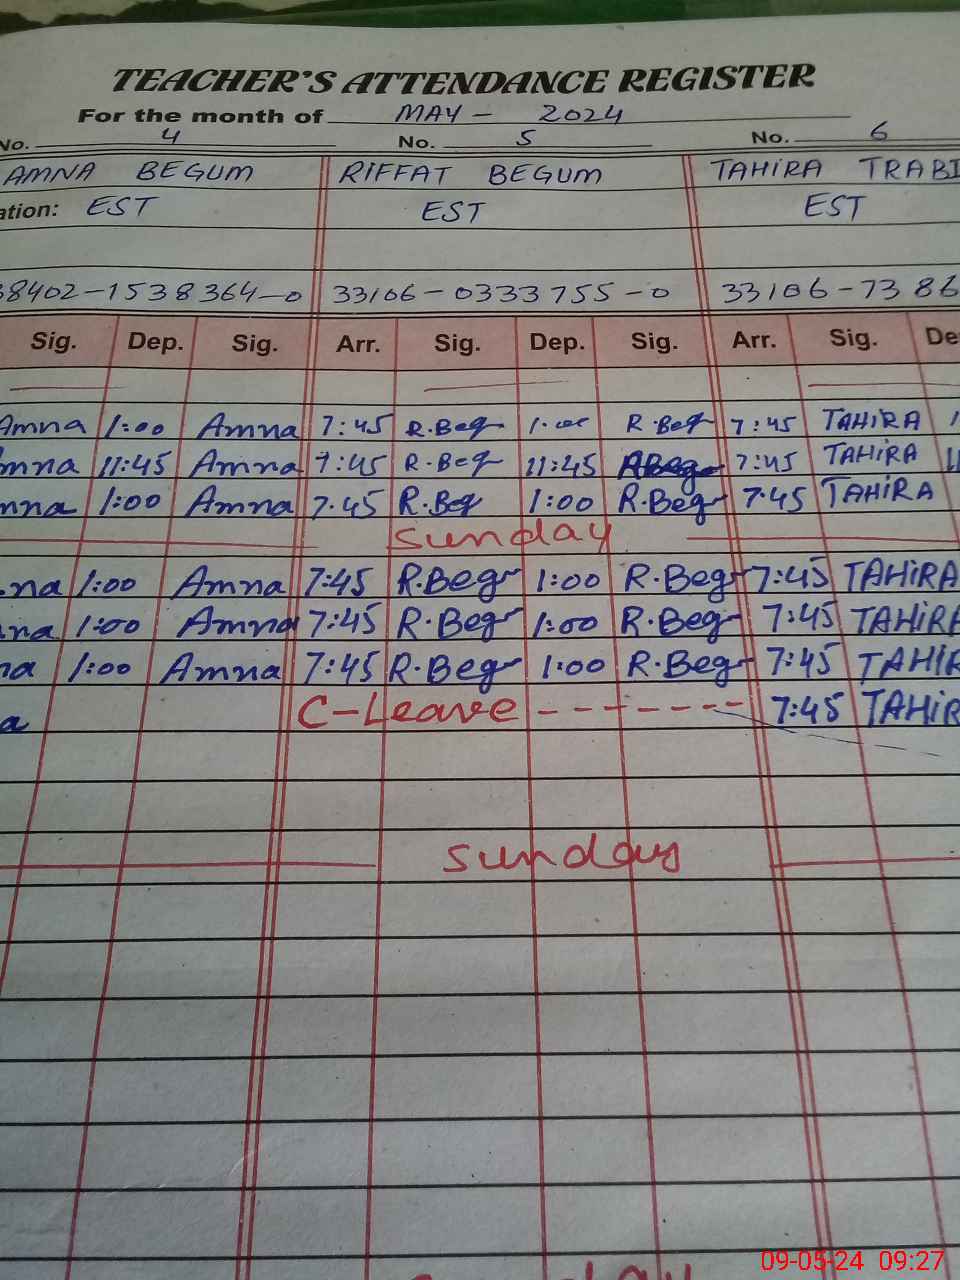 TEACHER'S ATTENDANCE REGISTER
For the month of MAY - 2024
No. 4 No. 5 No. 6
AMNA BEGUM RIFFAT BEGUM TAHIRA TRABI
ation: EST EST EST
38402-1538364-0 33106-0333755-0 33106-7386
Sig. Dep. Sig. Arr. Sig. Dep. Sig. Arr. Sig. De
Amna 1:00 Amna 7:45 R.Beg 1:00 R.Beg 7:45 TAHIRA 1
mna 11:45 Amna 7:45 R.Beg 11:45 RBeg 7:45 TAHIRA 11
nna 1:00 Amna 7.45 R.Beg 1:00 R.Beg 7.45 TAHIRA
Sunday
na 1:00 Amna 7:45 R.Beg 1:00 R.Beg 7:45 TAHIRA
na 1:00 Amna 7:45 R.Beg 1:00 R.Beg 7:45 TAHIRA
na 1:00 Amna 7:45 R.Beg 1:00 R.Beg 7:45 TAHIR
a C-Leave - - - - - - - 7:45 TAHIR
Sunday
09-05-24 09:27